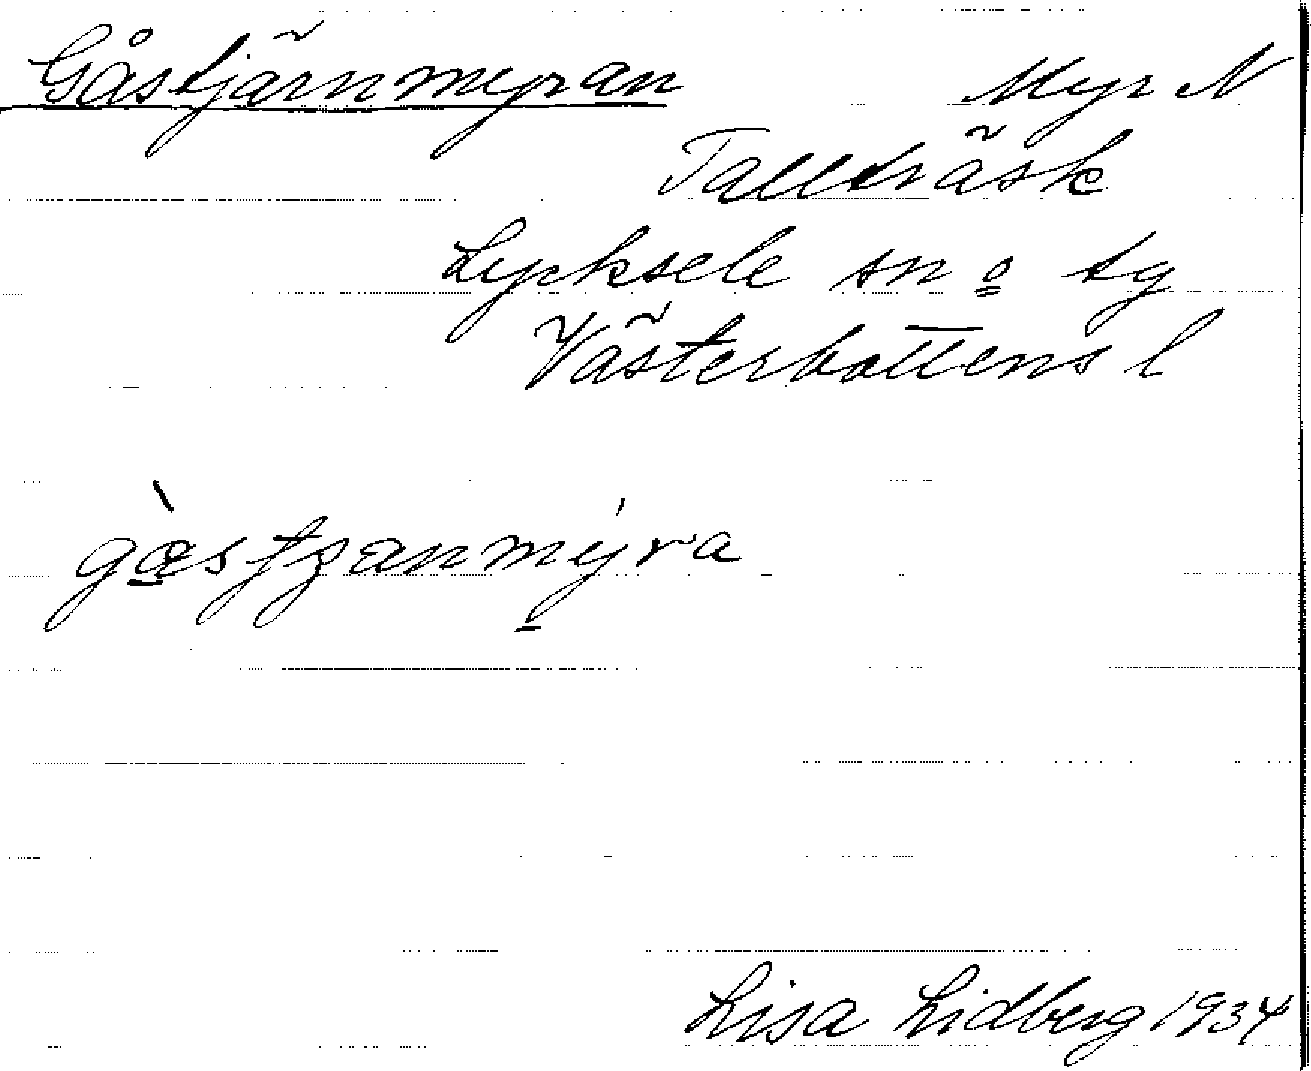 Gåstjärnmyran Myr N
Tallträsk
Lycksele sn o tg
Västerbottens l
Lisa Lidberg 1934